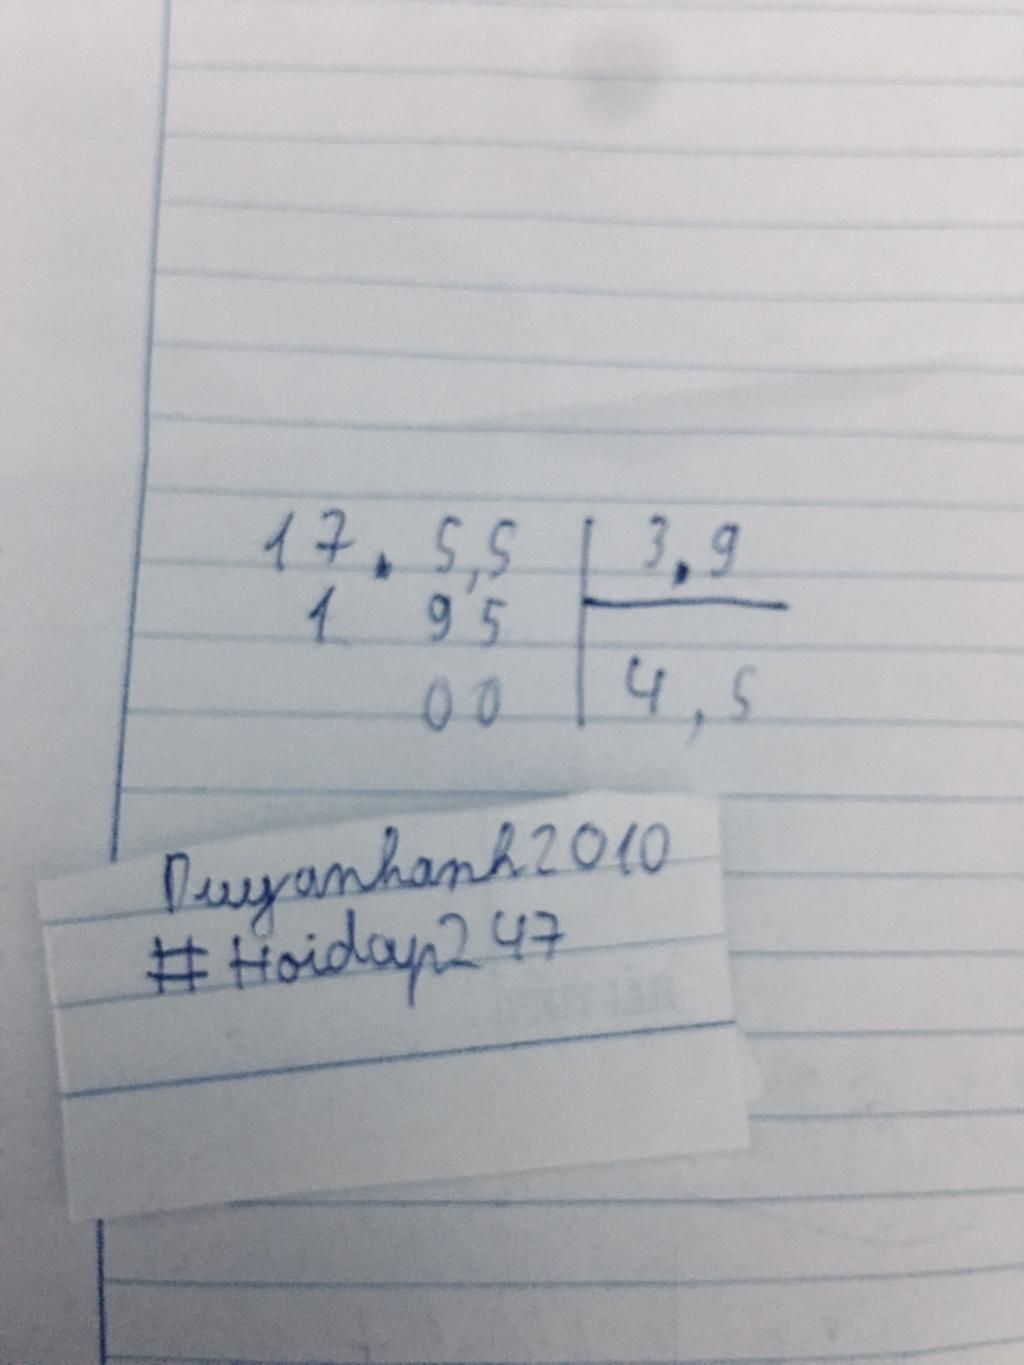 17. 5,5 3.9
1 95
00 4,5
Duyanhanh2010
#Hoidap247